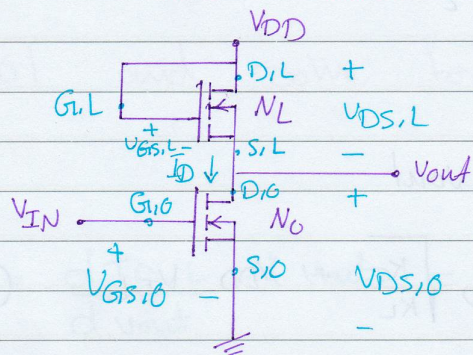 VDD
D,L +
G,L NL VDS,L
+ VGS,L - S,L -
ID ↓ D,O + Vout
VIN G,O NO
+ VGS,O - S,O VDS,O
-